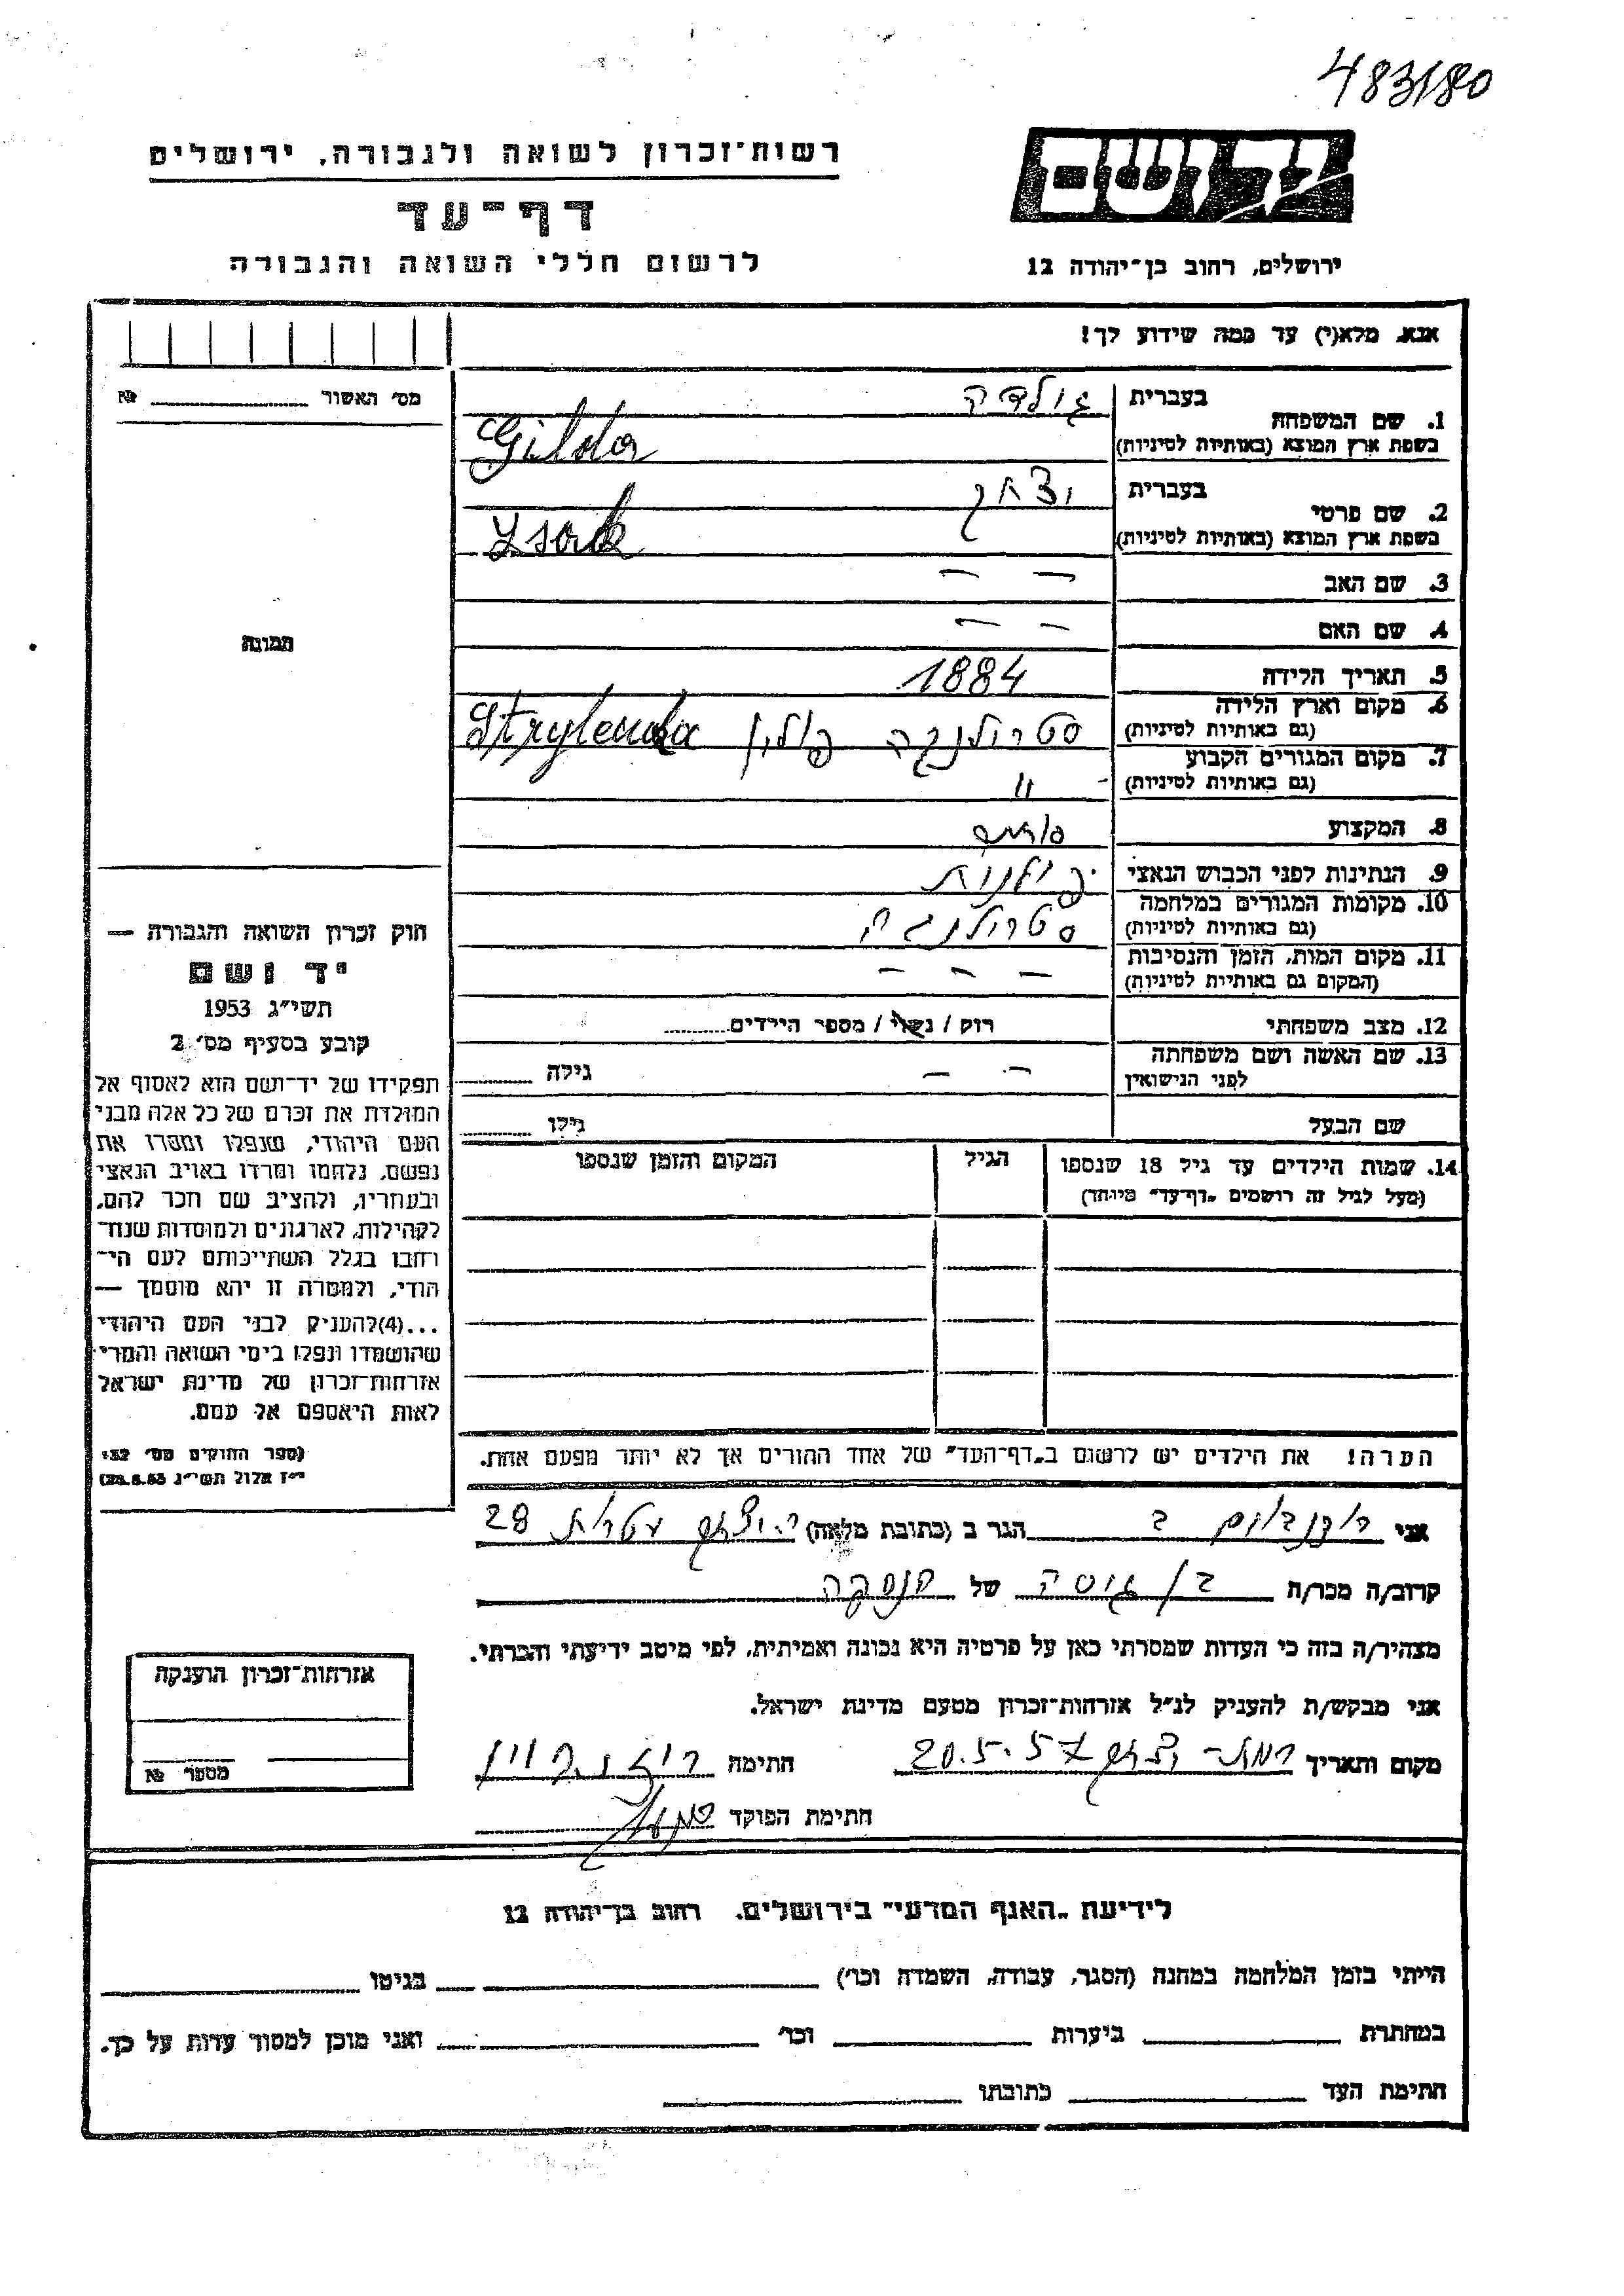 483/80
יד ושם
רשות־זכרון לשואה ולגבורה, ירושלים
דף־עד
לרשום חללי השואה והגבורה
ירושלים, רחוב בן־יהודה 12
אנא, מלא(י) עד כמה שידוע לך!
מס׳ האשור №
1. שם המשפחה
בעברית גולדה
בשפת ארץ המוצא (באותיות לטיניות) Gilda
2. שם פרטי
בעברית יצחק
בשפת ארץ המוצא (באותיות לטיניות)
3. שם האב – –
4. שם האם – –
5. תאריך הלידה 1884
6. מקום וארץ הלידה
(גם באותיות לטיניות) פולין
7. מקום המגורים הקבוע
(גם באותיות לטיניות) "
8. המקצוע סוחר
9. הנתינות לפני הכבוש הנאצי פולנית
10. מקומות המגורים במלחמה
(גם באותיות לטיניות)
11. מקום המות, הזמן והנסיבות
(המקום גם באותיות לטיניות) – – –
12. מצב משפחתי רוק / נשוי / מספר הילדים
13. שם האשה ושם משפחתה
לפני הנישואין – – גילה
שם הבעל גילו
14. שמות הילדים עד גיל 18 שנספו
(מעל לגיל זה רושמים „דף־עד” מיוחד)
הגיל
המקום והזמן שנספו
הערה! את הילדים יש לרשום ב„דף־העד” של אחד ההורים אך לא יותר מפעם אחת.
תמונה
חוק זכרון השואה והגבורה —
יד ושם
תשי״ג 1953
קובע בסעיף מס׳ 2
תפקידו של יד־ושם הוא לאסוף אל
המולדת את זכרם של כל אלה מבני
העם היהודי, שנפלו ומסרו את
נפשם, נלחמו ומרדו באויב הנאצי
ובעוזריו, ולהציב שם וזכר להם,
לקהילות, לארגונים ולמוסדות שנח־
רבו בגלל השתייכותם לעם הי־
הודי, ולמטרה זו יהא מוסמך —
...(4)להעניק לבני העם היהודי
שהושמדו ונפלו בימי השואה והמרי
אזרחות־זכרון של מדינת ישראל
לאות היאספם אל עמם.
(ספר החוקים מס׳ 132
י״ז אלול תשי״ג 28.8.53)
אני הגר ב (כתובת מלאה) 28
קרוב/ה מכר/ה של
מצהיר/ה בזה כי העדות שמסרתי כאן על פרטיה היא נכונה ואמיתית, לפי מיטב ידיעתי והכרתי.
אני מבקש/ת להעניק לנ״ל אזרחות־זכרון מטעם מדינת ישראל.
מקום ותאריך רמת־יצחק 20.5.57 חתימה
חתימת הפוקד
אזרחות־זכרון הוענקה
מספר №
לידיעת „האגף המדעי” בירושלים. רחוב בן־יהודה 12
הייתי בזמן המלחמה במחנה (הסגר, עבודה, השמדה וכו׳) בגיטו
במחתרת ביערות וכו׳ ואני מוכן למסור עדות על כך.
חתימת העד כתובתו